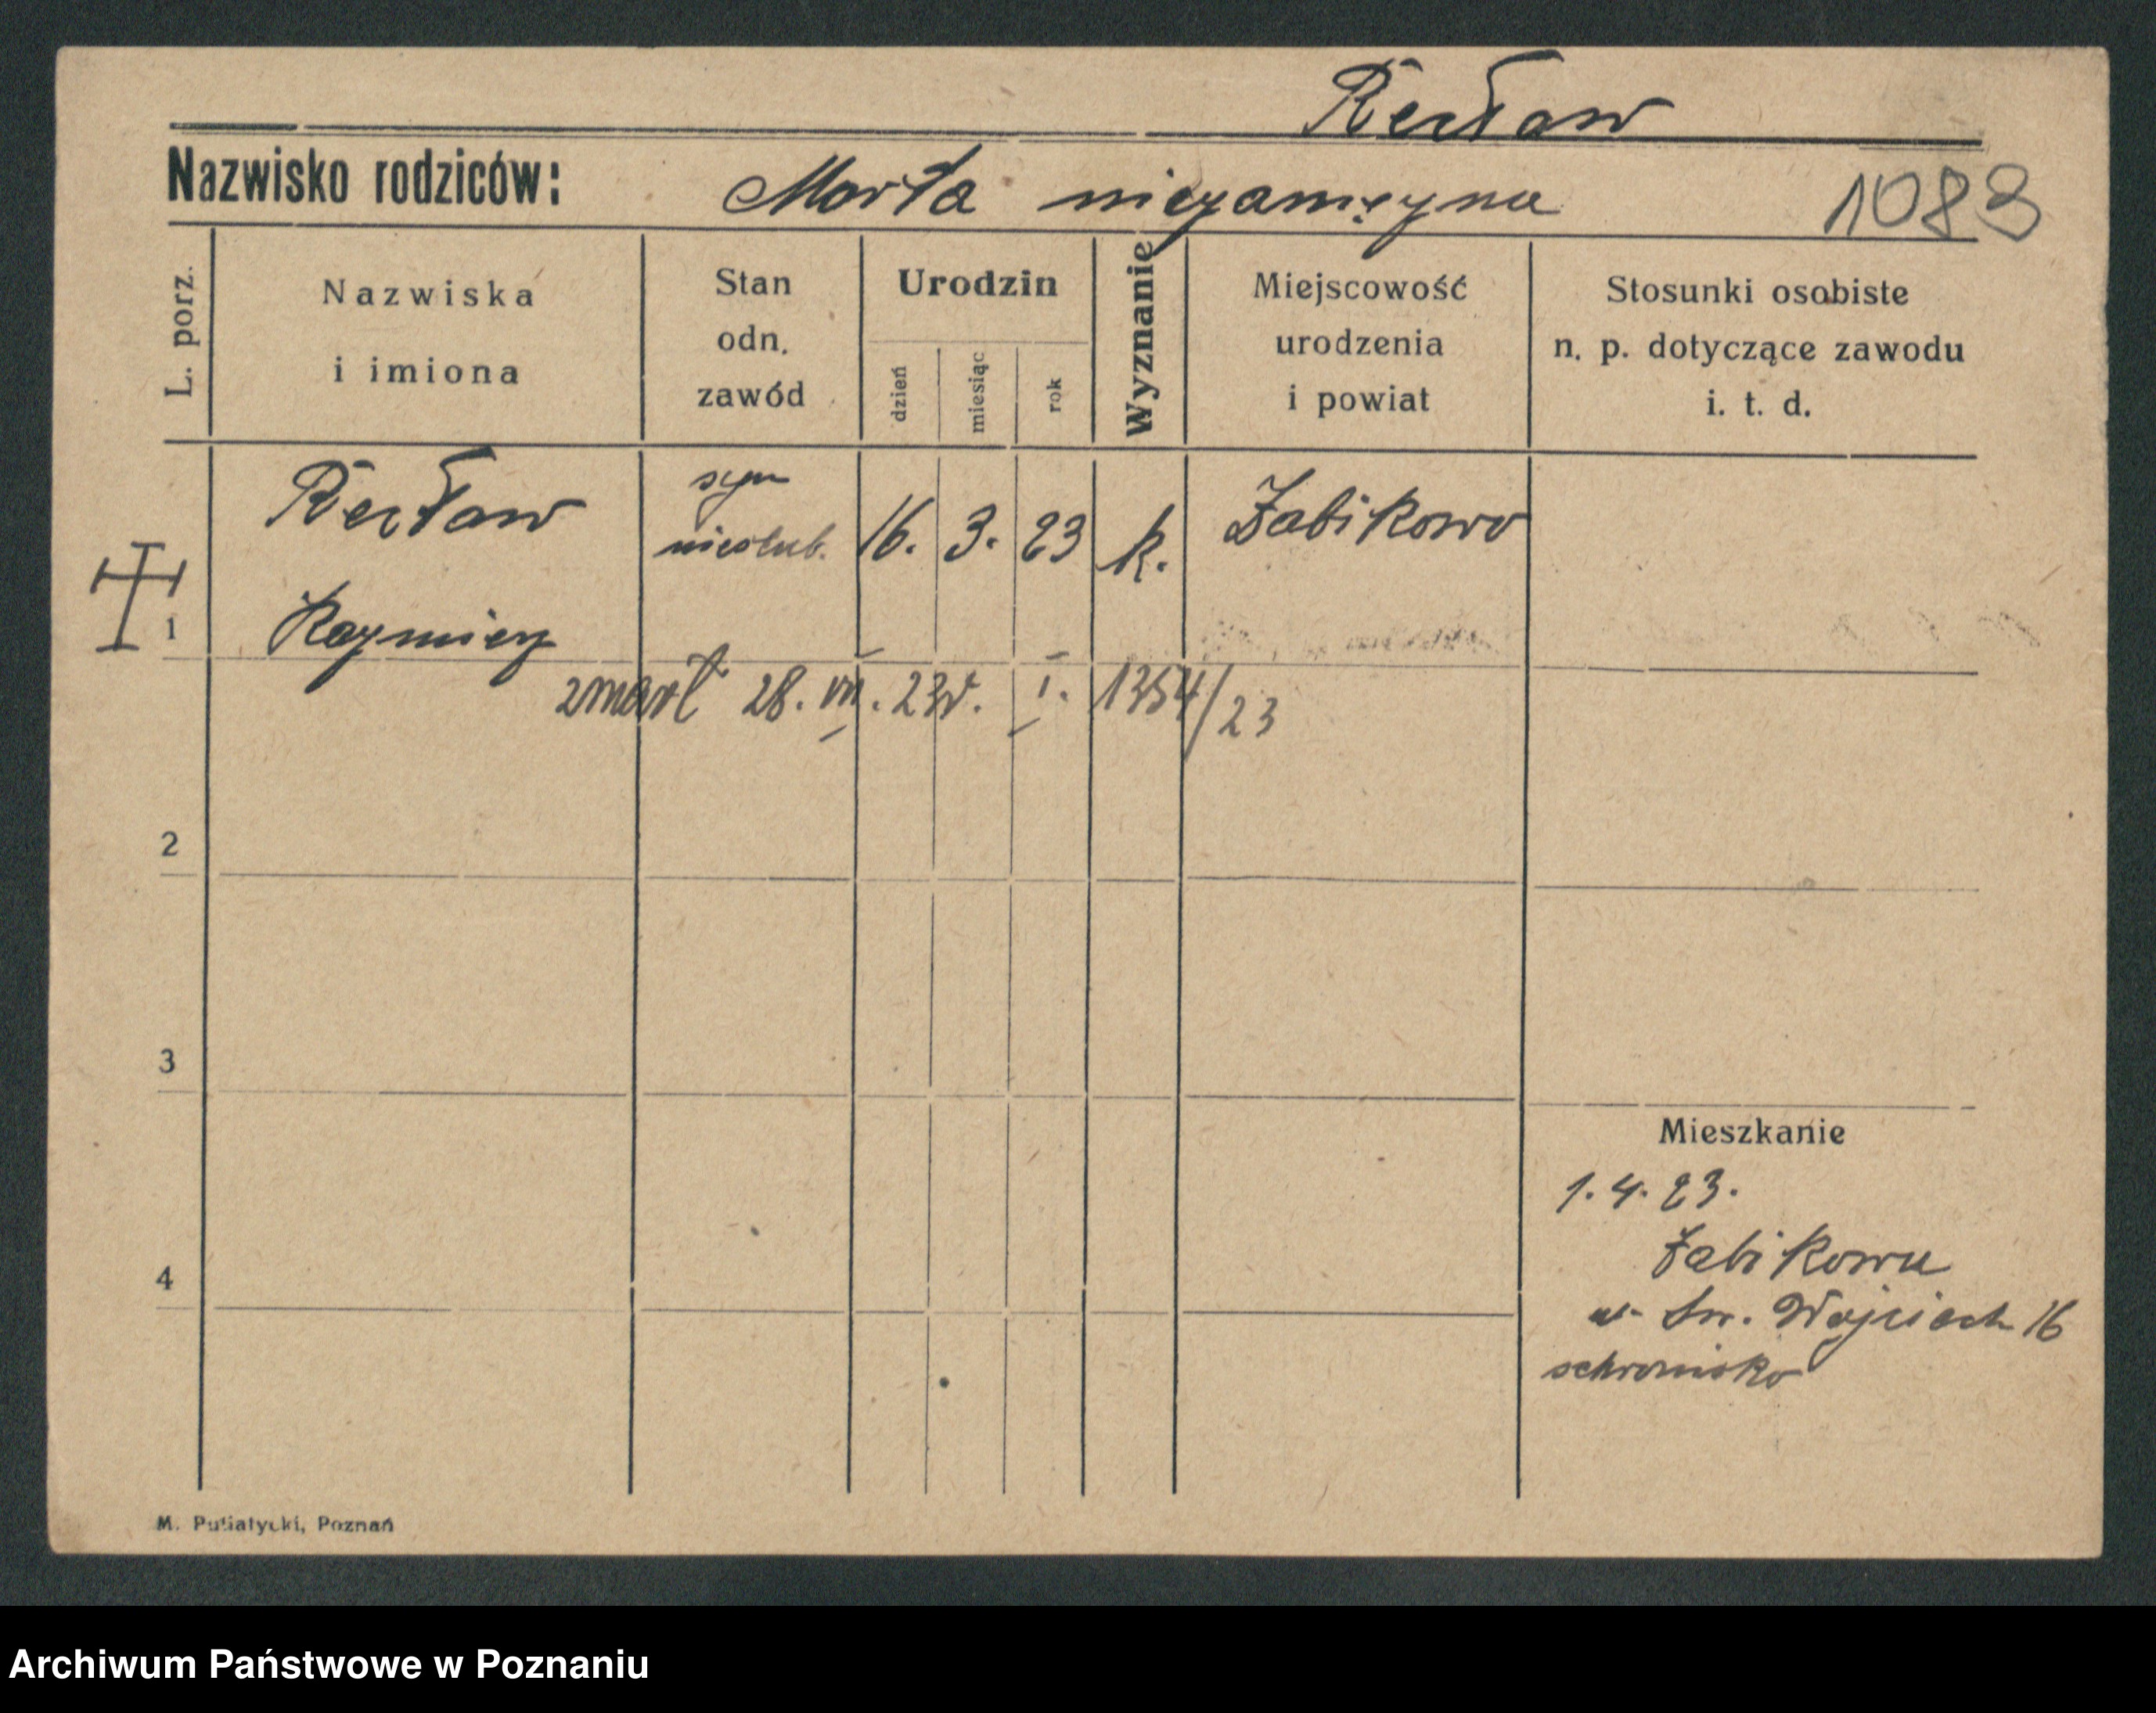 Recław
Nazwisko rodziców: Marta niezamężna 1083
L. porz.
Nazwiska
i imiona
Stan
odn.
zawód
Urodzin
dzień
miesiąc
rok
Wyznanie
Miejscowość
urodzenia
i powiat
Stosunki osobiste
n. p. dotyczące zawodu
i. t. d.
1
Recław
Kazmierz
syn
nieślub.
16. 3. 23 k. Żabikowo
zmarł 28. VII. 23r. I. 1354/23
2
3
4
Mieszkanie
1. 4. 23.
Żabikowa
św. Wojciech 16
schronisko
M. Putiatycki, Poznań
Archiwum Państwowe w Poznaniu